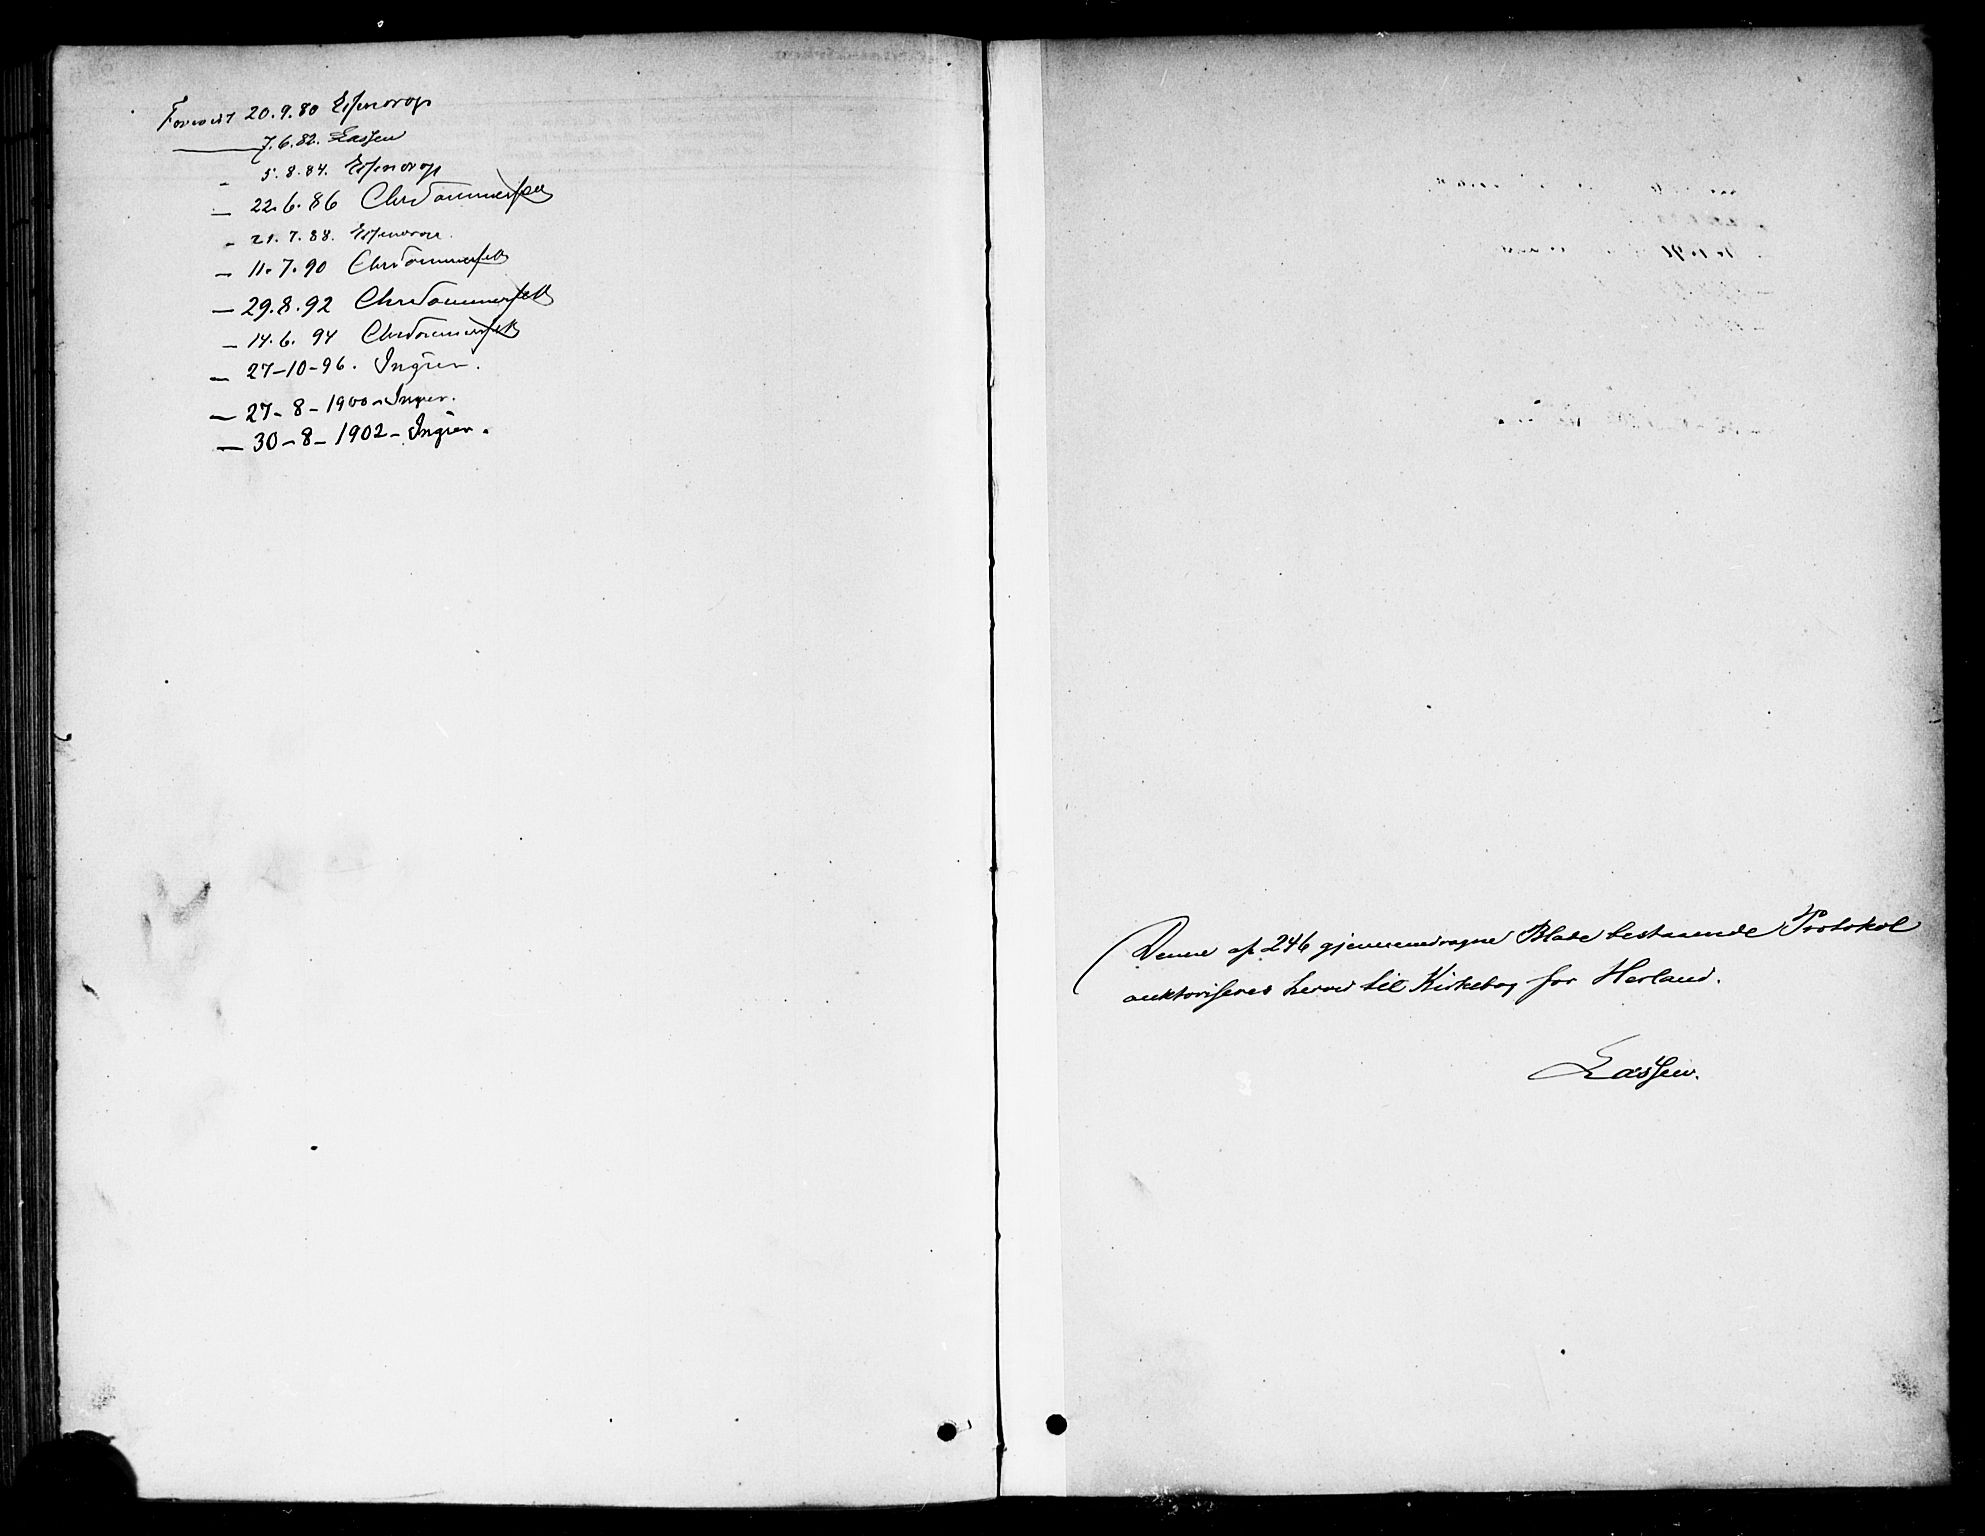 Forevist 20.9.80 Essendrop
— 7.6.82. Lassen
" 5.8.84. Essendrop
— 22.6.86 Chr Sommerfelt
" 21.7.88. Essendrop
— 11.7.90 Chr Sommerfelt
— 29.8.92 Chr Sommerfelt
— 14.6.94 Chr Sommerfelt
— 27-10-96. Ingier.
— 27-8-1900 - Ingier.
— 30-8-1902 - Ingier.
Denne af 246 gjennemdragne Blade bestaaende Protokol
auktoriseres herved til Kirkebog for Herland.
Lassen.